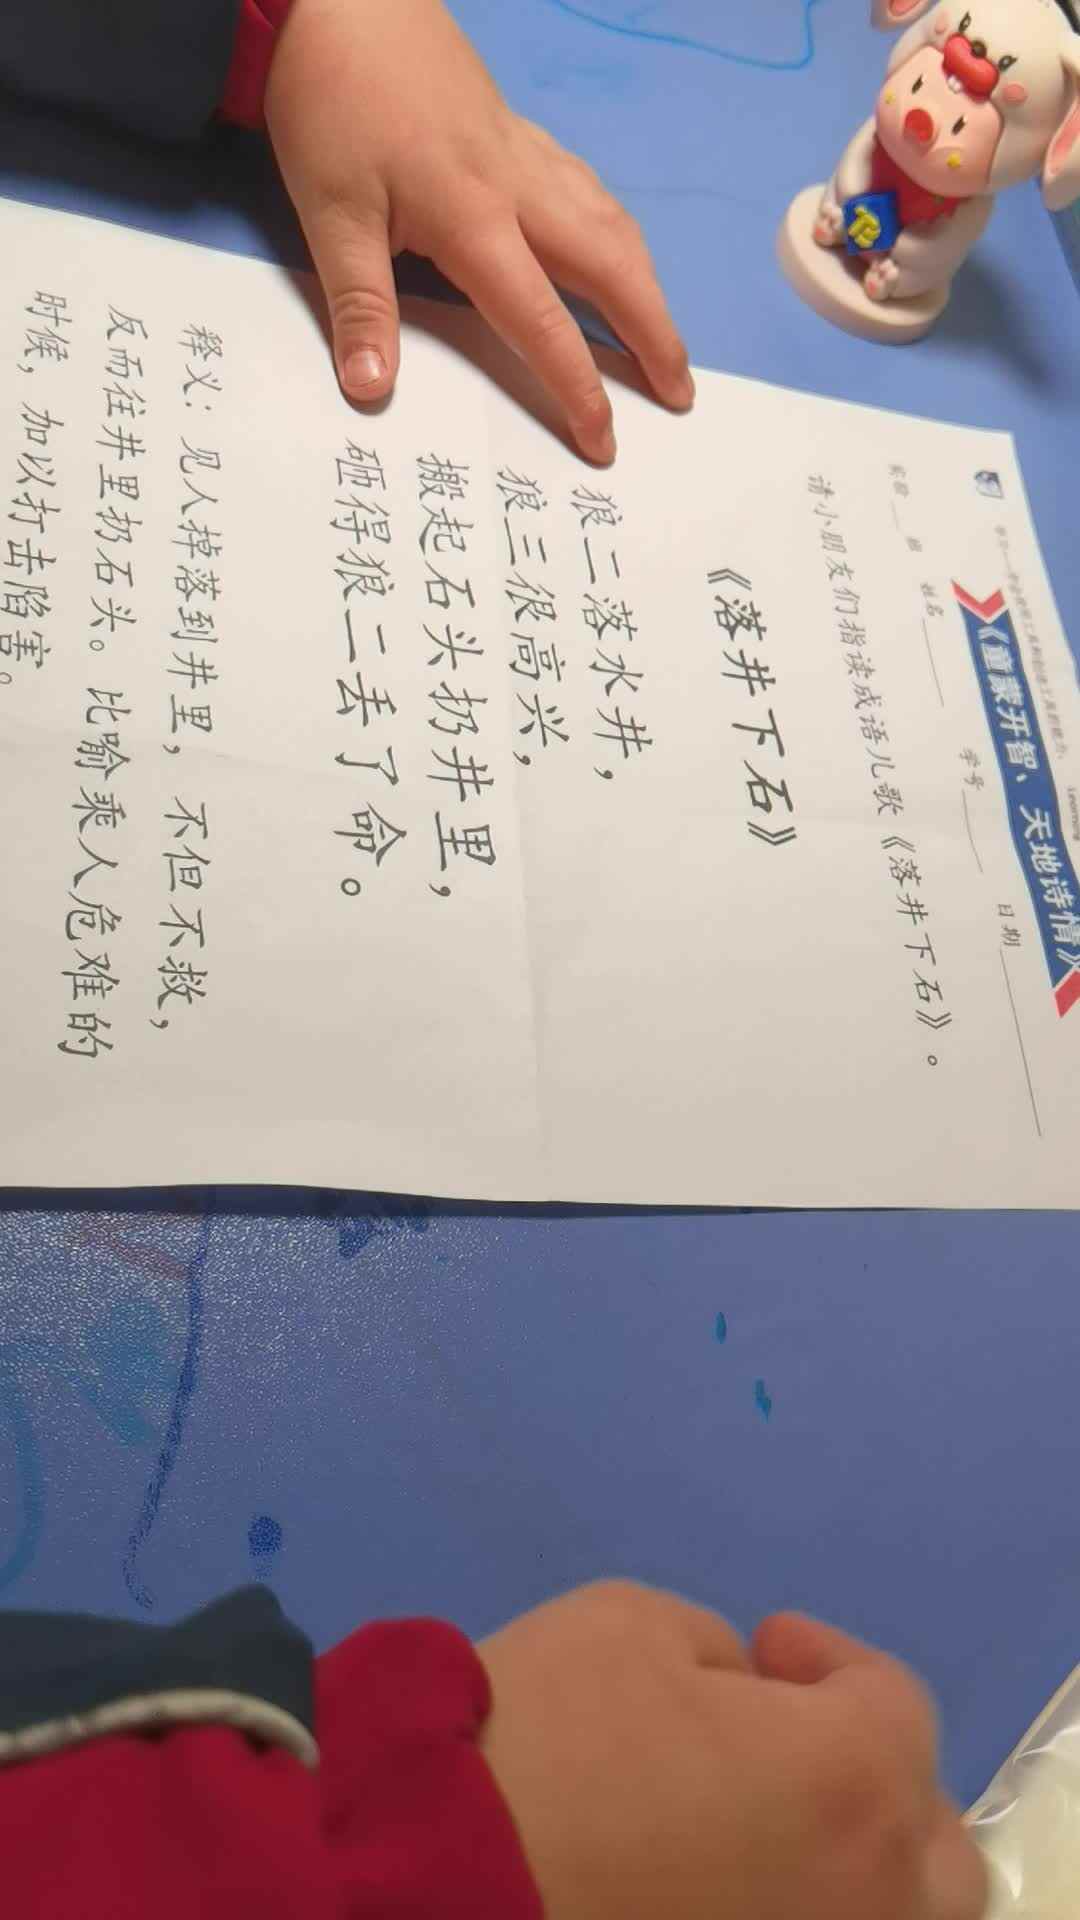 《童蒙开智、天地诗情》
姓名 学号 日期
请小朋友们指读成语儿歌《落井下石》。
《落井下石》
狼二落水井，
狼三很高兴，
搬起石头扔井里，
砸得狼二丢了命。
释义：见人掉落到井里，不但不救，
反而往井里扔石头。比喻乘人危难的
时候，加以打击陷害。